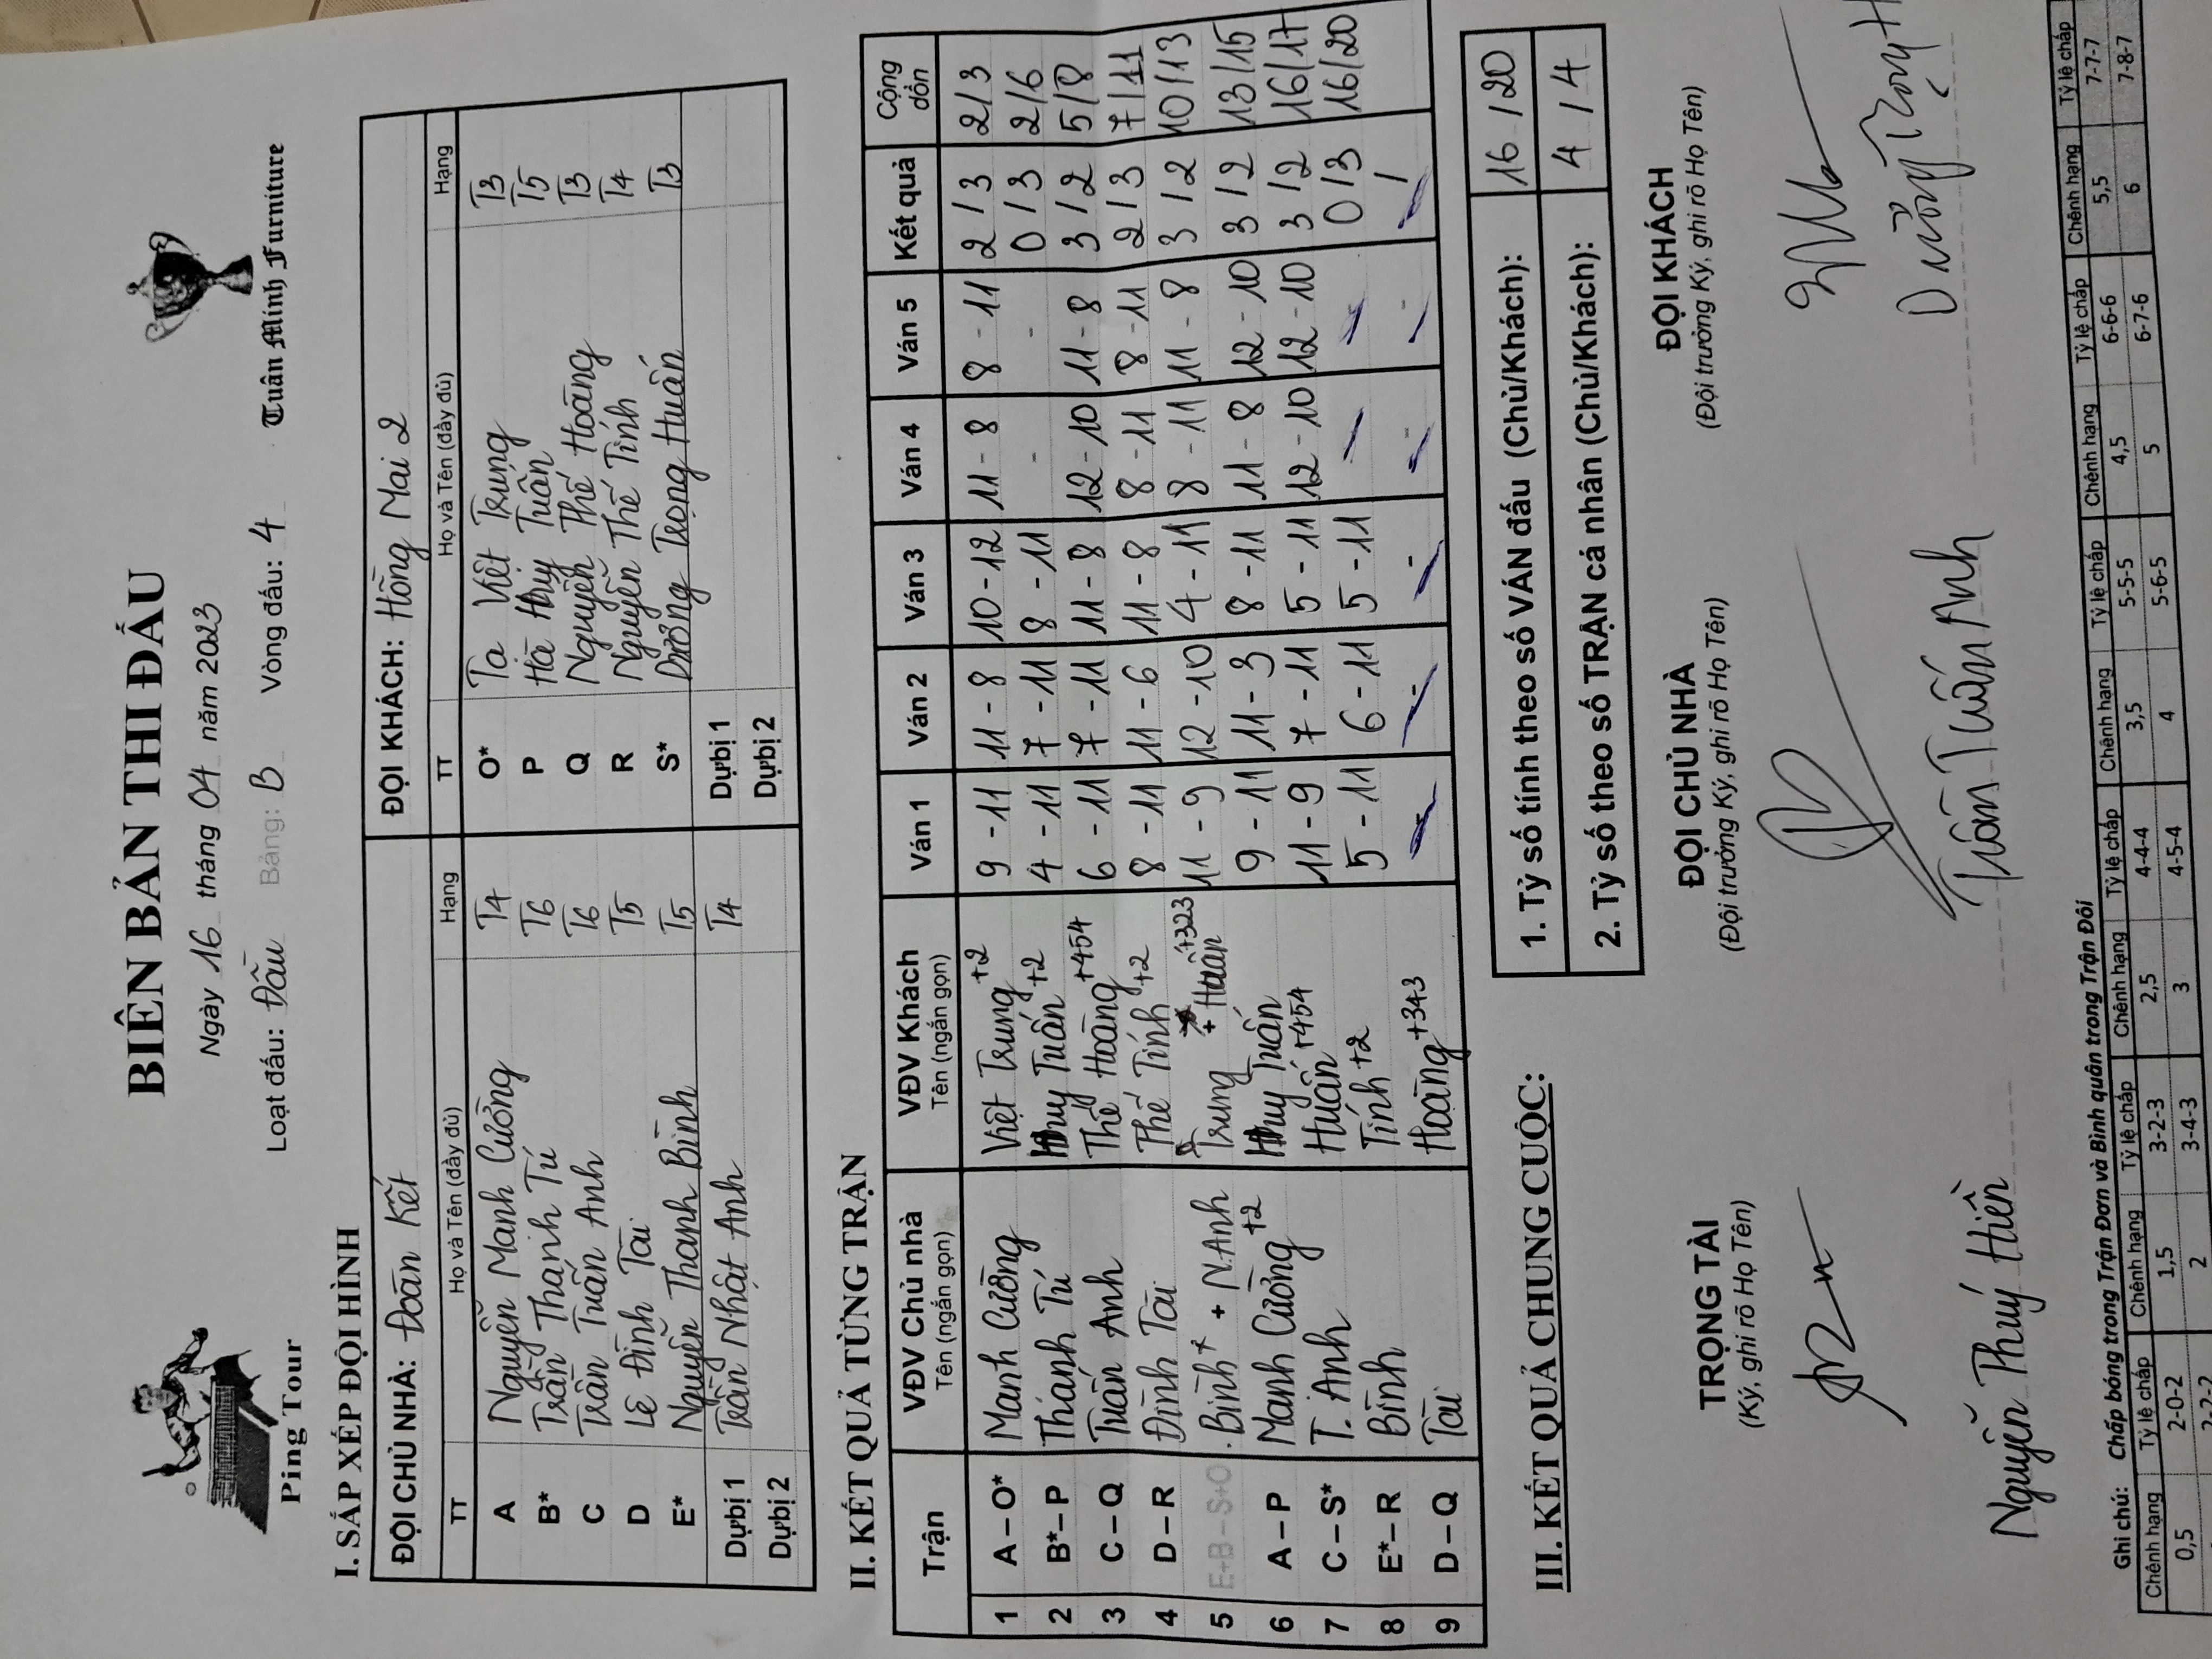 BIÊN BẢN THI ĐẤU
Ngày 16 tháng 04 năm 2023
Loạt đấu: Đầu Bảng: B Vòng đấu: 4
Ping Tour
Tuấn Minh Furniture
I. SẮP XẾP ĐỘI HÌNH
ĐỘI CHỦ NHÀ: Đoàn Kết ĐỘI KHÁCH: Hồng Mai 2
TT Họ và Tên (đầy đủ) Hạng TT Họ và Tên (đầy đủ) Hạng
A Nguyễn Mạnh Cường T4 O* Tạ Việt Trung T3
B* Trần Thanh Tú T6 P Hà Huy Tuấn T5
C Trần Tuấn Anh T6 Q Nguyễn Thế Hoàng T3
D Lê Đình Tài T5 R Nguyễn Thế Tính T4
E* Nguyễn Thanh Bình T5 S* Dương Trọng Huấn T3
Dự bị 1 Trần Nhật Anh T4 Dự bị 1
Dự bị 2 Dự bị 2
II. KẾT QUẢ TỪNG TRẬN
Trận VĐV Chủ nhà VĐV Khách Ván 1 Ván 2 Ván 3 Ván 4 Ván 5 Kết quả Cộng dồn
Tên (ngắn gọn) Tên (ngắn gọn)
1 A – O* Mạnh Cường Việt Trung +2 9 - 11 11 - 8 10 - 12 11 - 8 8 - 11 2 / 3 2/3
2 B* – P Thánh Tú Huy Tuấn +2 4 - 11 7 - 11 8 - 11 - - 0 / 3 2/6
3 C – Q Tuấn Anh Thế Hoàng +454 6 - 11 7 - 11 11 - 8 12 - 10 11 - 8 3 / 2 5/8
4 D – R Đình Tài Thế Tính +2 8 - 11 11 - 6 11 - 8 8 - 11 8 - 11 2 / 3 7/11
5 E+B – S+O Bình* + N.Anh Trung + Huấn +323 11 - 9 12 - 10 4 - 11 8 - 11 11 - 8 3 / 2 10/13
6 A – P Mạnh Cường +2 Huy Tuấn 9 - 11 11 - 3 8 - 11 11 - 8 12 - 10 3 / 2 13/15
7 C – S* T. Anh Huấn +454 11 - 9 7 - 11 5 - 11 12 - 10 12 - 10 3 / 2 16/17
8 E* – R Bình Tính +2 5 - 11 6 - 11 5 - 11 0 / 3 16/20
9 D – Q Tài Hoàng +343 - - - - - /
III. KẾT QUẢ CHUNG CUỘC:
1. Tỷ số tính theo số VÁN đấu (Chủ/Khách): 16 / 20
2. Tỷ số theo số TRẬN cá nhân (Chủ/Khách): 4 / 4
TRỌNG TÀI ĐỘI CHỦ NHÀ ĐỘI KHÁCH
(Ký, ghi rõ Họ Tên) (Đội trưởng Ký, ghi rõ Họ Tên) (Đội trưởng Ký, ghi rõ Họ Tên)
Nguyễn Thuý Hiền Trần Tuấn Anh Dương Trọng
Ghi chú: Chấp bóng trong Trận Đơn và Bình quân trong Trận Đôi
Chênh hạng Tỷ lệ chấp Chênh hạng Tỷ lệ chấp Chênh hạng Tỷ lệ chấp Chênh hạng Tỷ lệ chấp Chênh hạng Tỷ lệ chấp Chênh hạng Tỷ lệ chấp
0,5 2-0-2 1,5 3-2-3 2,5 4-4-4 3,5 5-5-5 4,5 6-6-6 5,5 7-7-7
2-2-2 2 3-4-3 3 4-5-4 4 5-6-5 5 6-7-6 6 7-8-7